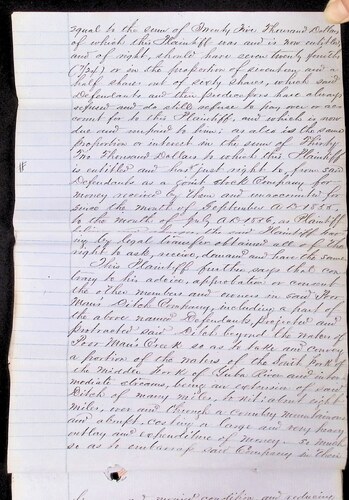 equal to the sum of Twenty Five Thousand Dollars
of which this Plaintiff was and is now entitled
and of right, should have seven twenty fourths
(7/24) or in the proportion of seventeen and a
half shares out of sixty shares, which said
Defendants and their predecessors have always
refused and do still refuse to pay over or ac-
count for to this Plaintiff, and which is now
due and unpaid to him: as also is the same
proportion or interest in the sum of Thirty
Two Thousand Dollars to which this Plaintiff
is entitled and has just right to from said
Defendants as a joint stock Company for
money received by them and unaccounted for
since the month of September A.D. 1855,
to the month of July A.D. 1856, as Plaintiff
the said Plaintiff hav-
ing by legal transfer obtained all of the
right to ask, receive, demand and have the same
This Plaintiff further says that con-
trary to his advice, approbation or consent
the other members and owners in said Poor
Man's Ditch Company, including a part of
the above named Defendants, projected and
protracted said Ditch beyond the waters of
Poor Man's Creek so as to take and convey
a portion of the waters of the South Fork of
the Middle Fork of Yuba River and inter-
mediate streams, being an extension of said
Ditch of many miles, to wit: about eight
miles, over and through a country mountainous
and abrupt, costing a large and very heavy
outlay and expenditure of money - so much
so as to embarrass said Company in their
condition and reducing